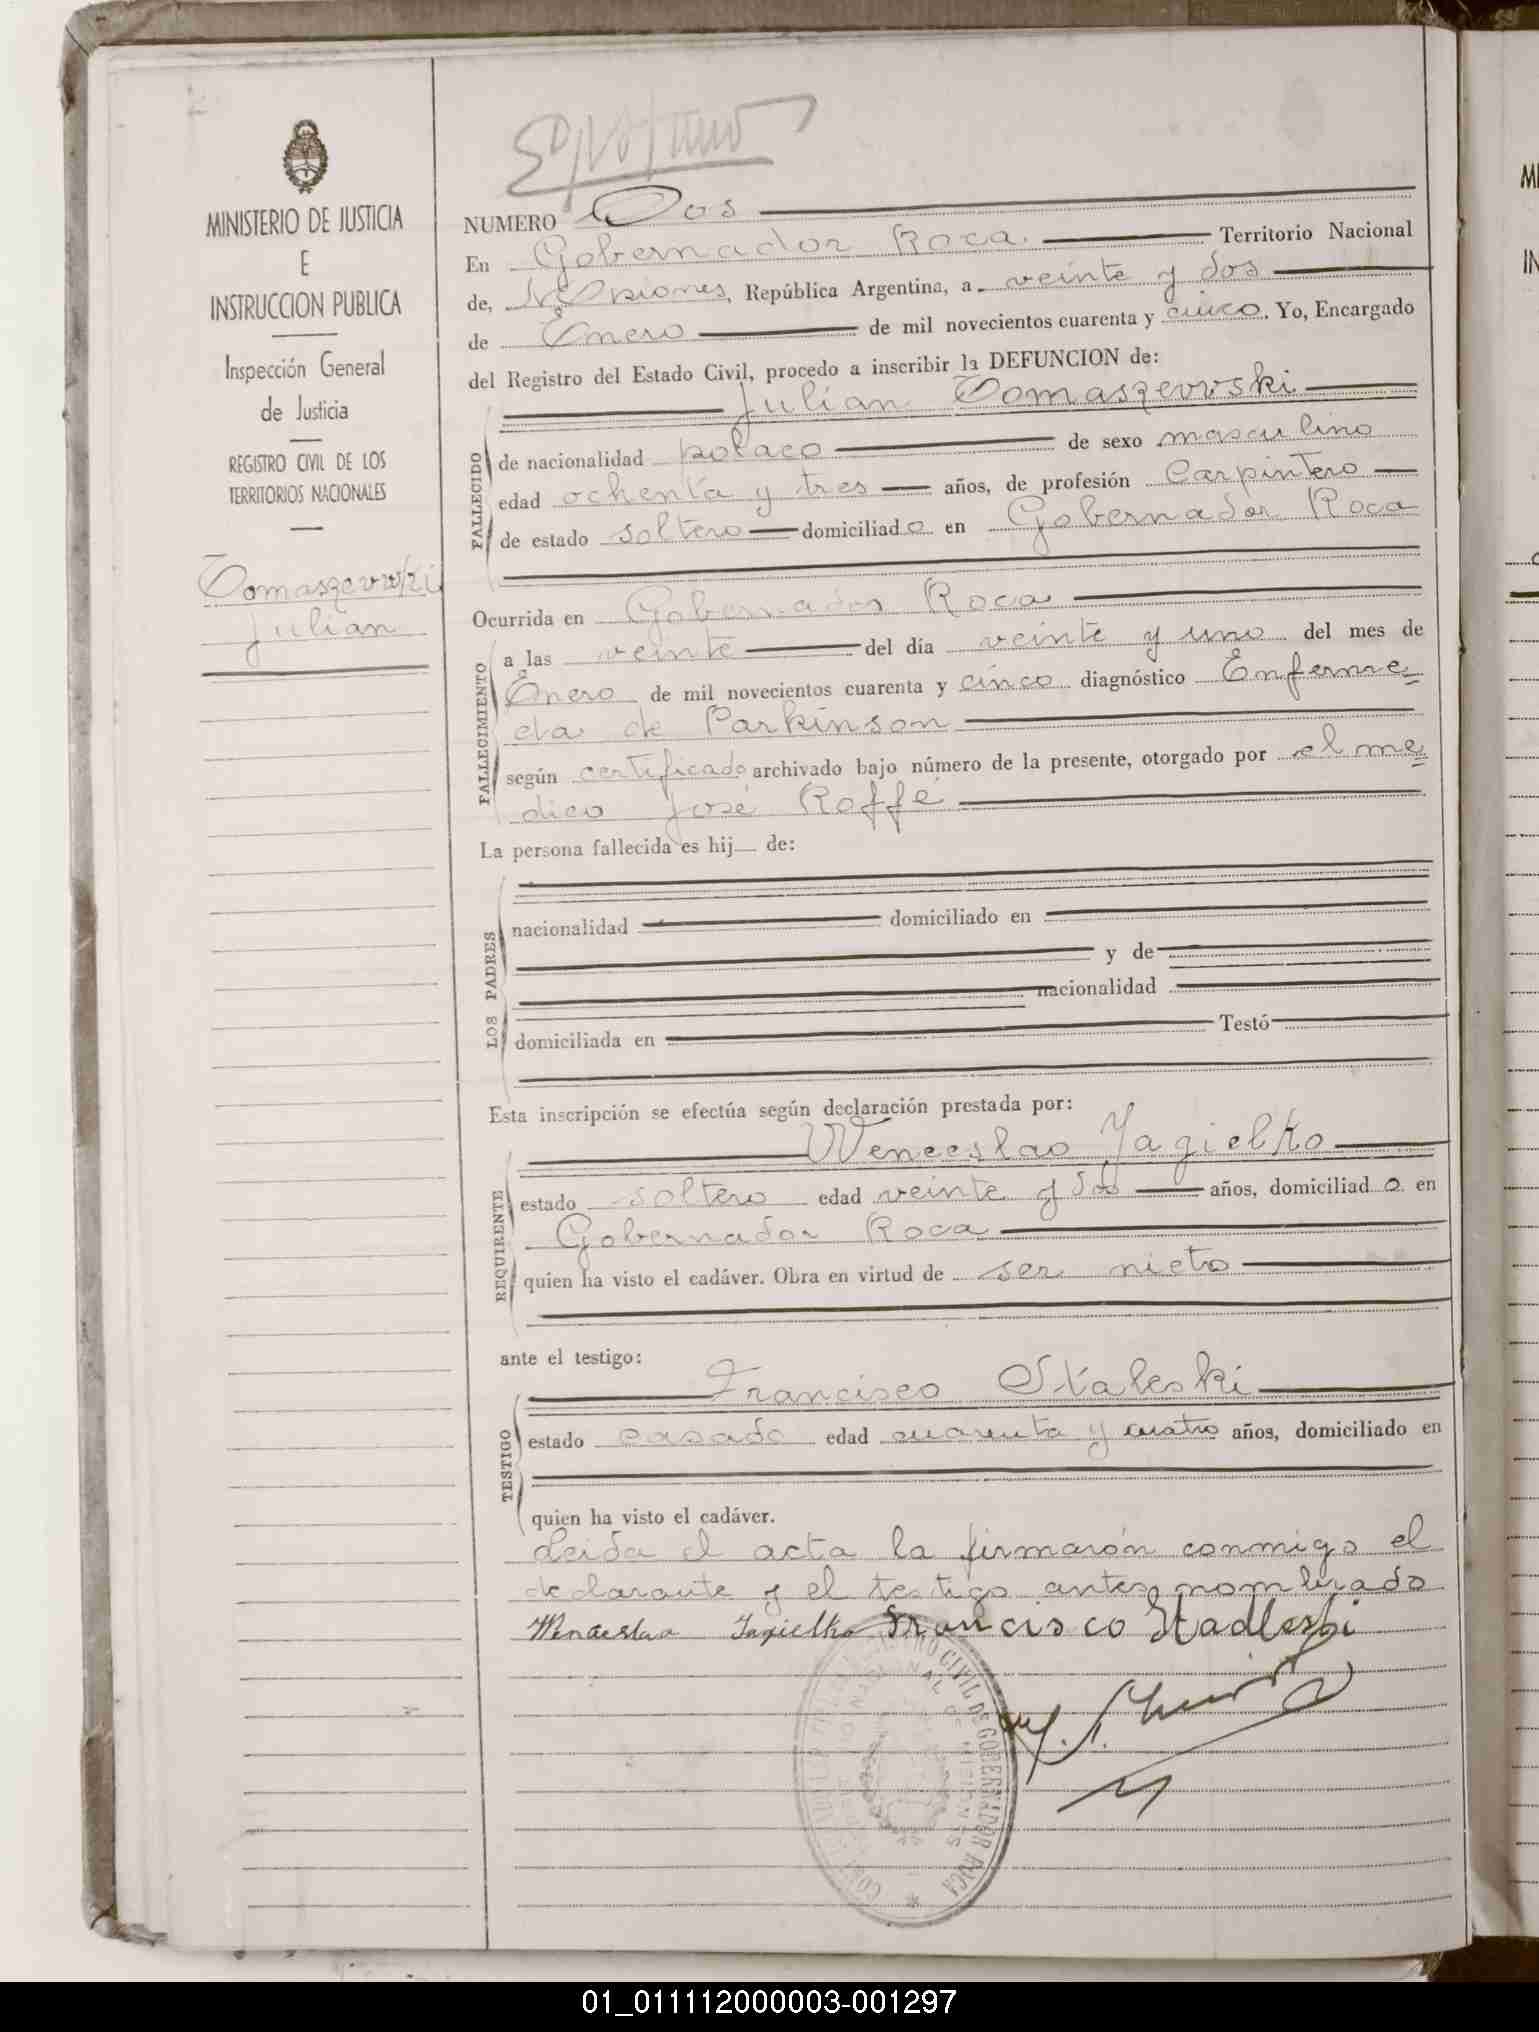 MINISTERIO DE JUSTICIA
E
INSTRUCCION PUBLICA
Inspección General
de Justicia
REGISTRO CIVIL DE LOS
TERRITORIOS NACIONALES
Tomaszewski
Julian
NUMERO Dos
En Gobernador Roca. Territorio Nacional
de, Misiones, República Argentina, a veinte y dos
de Enero de mil novecientos cuarenta y cinco. Yo, Encargado
del Registro del Estado Civil, procedo a inscribir la DEFUNCION de:
Julian Tomaszewski
FALLECIDO
de nacionalidad polaco de sexo masculino
edad ochenta y tres años, de profesión Carpintero
de estado soltero domiciliado en Gobernador Roca
Ocurrida en Gobernador Roca
FALLECIMIENTO
a las veinte del día veinte y uno del mes de
Enero de mil novecientos cuarenta y cinco diagnóstico Enferme
da de Parkinson
según certificado archivado bajo número de la presente, otorgado por el me
dico José Roffé
La persona fallecida es hij de:
LOS PADRES
nacionalidad domiciliado en
y de
nacionalidad
domiciliada en Testó
Esta inscripción se efectúa según declaración prestada por:
Wenceslao Jagielko
REQUIRENTE
estado soltero edad veinte y dos años, domiciliado en
Gobernador Roca
quien ha visto el cadáver. Obra en virtud de ser nieto
ante el testigo:
Francisco Staleski
TESTIGO
estado casado edad cuarenta y cuatro años, domiciliado en
quien ha visto el cadáver.
Leida el acta la firmarón conmigo el
declarante y el testigo antes nombrado
Wenceslao Jagielko Francisco Stadleski
CIVIL DE GOBERNADOR ROCA
01_011112000003-001297